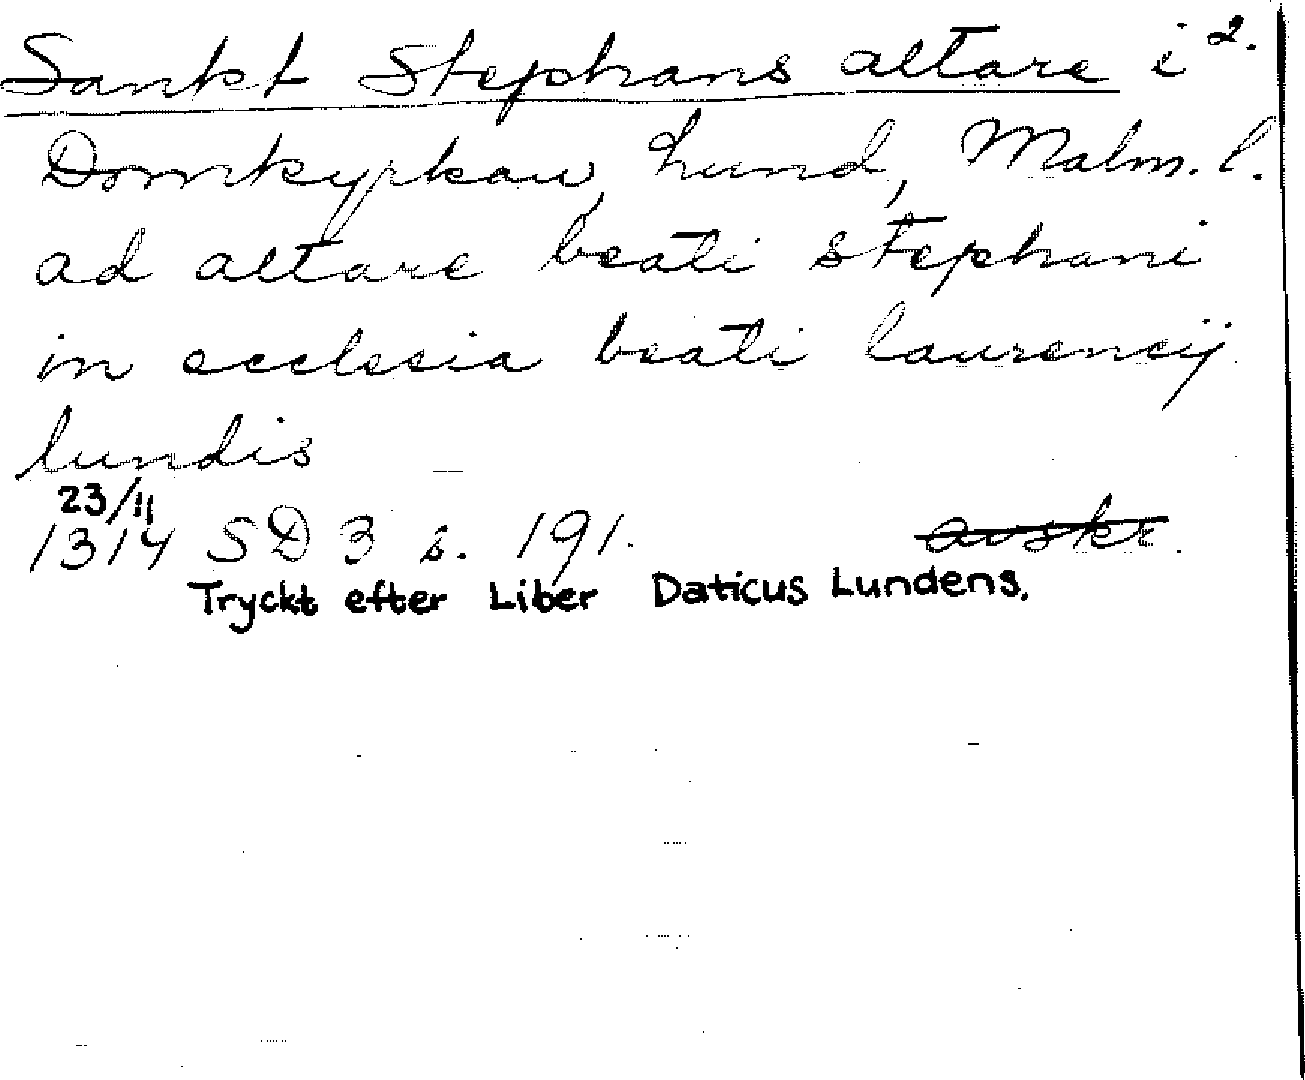 Sankt Stephans altare i 2.
Domkyrkan, Lund, Malm. l.
ad altare beati stephani
in ecclesia beati laurencij
lundis
23/11
1314 SD 3 s. 191. avskr.
Tryckt efter Liber Daticus Lundens.